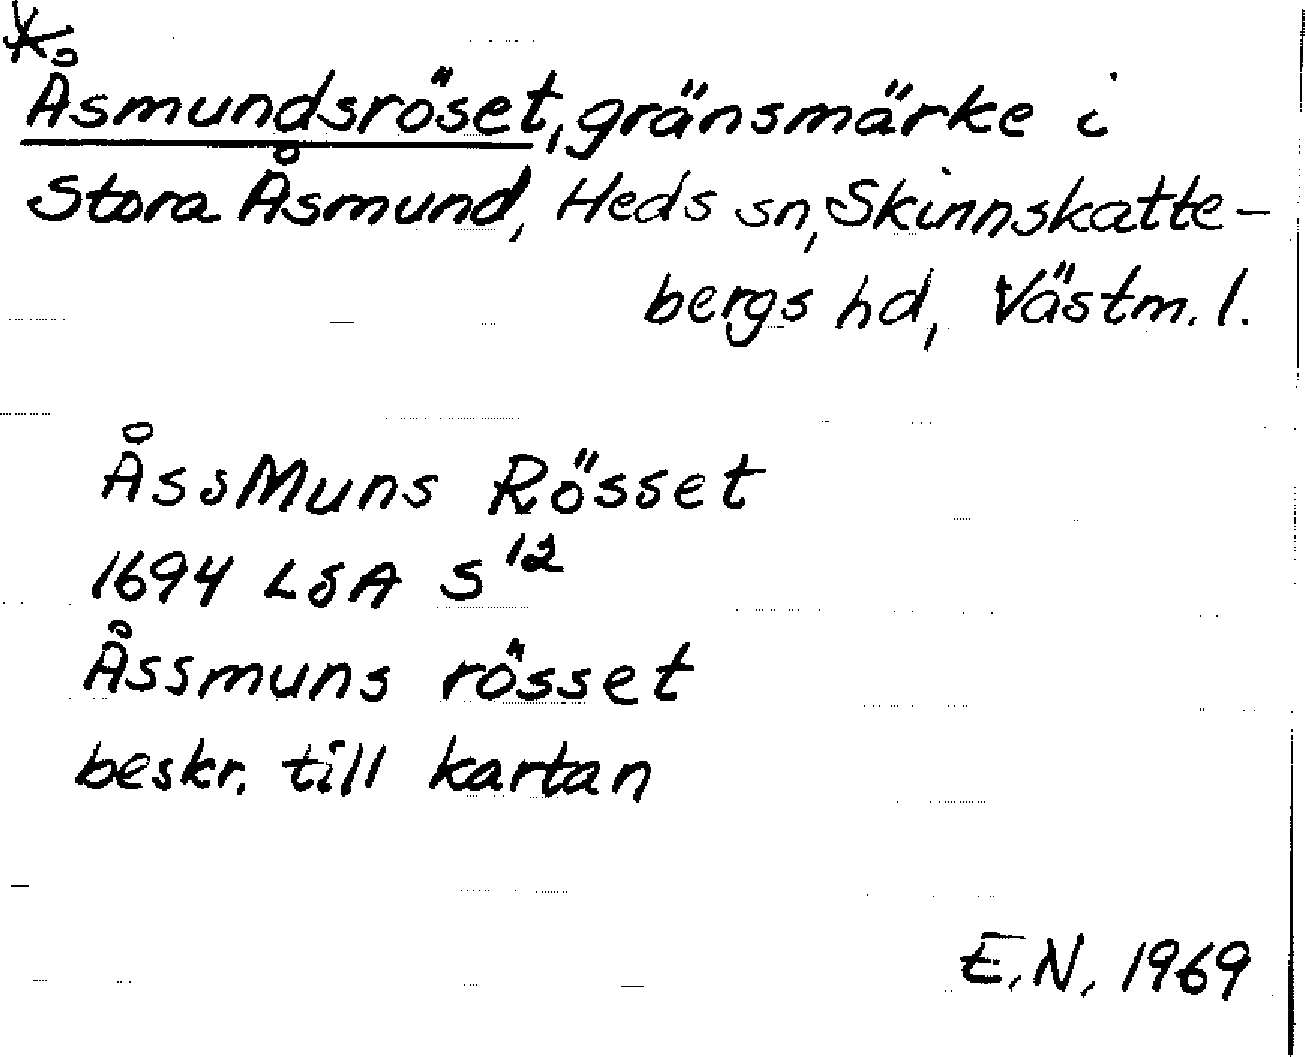 Åsmundsröset, gränsmärke i
Stora Åsmund, Heds sn, Skinnskatte-
bergs hd, Västm. l.
ÅssMuns Rösset
1694 LSA S 12
Åssmuns rösset
beskr. till kartan
E.N. 1969